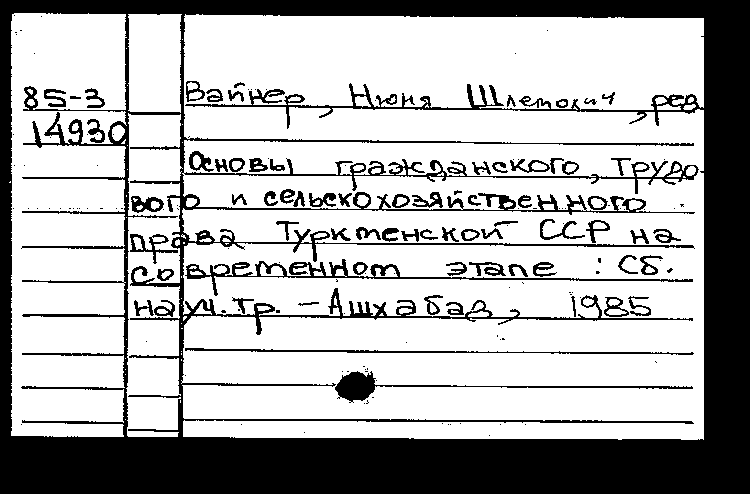 85-3
14930
Вайнер, Нюня Шлемович, ред.
Основы гражданского, трудо-
вого и сельскохозяйственного
права Туркменской ССР на
современном этапе : Сб.
науч. тр. – Ашхабад, 1985